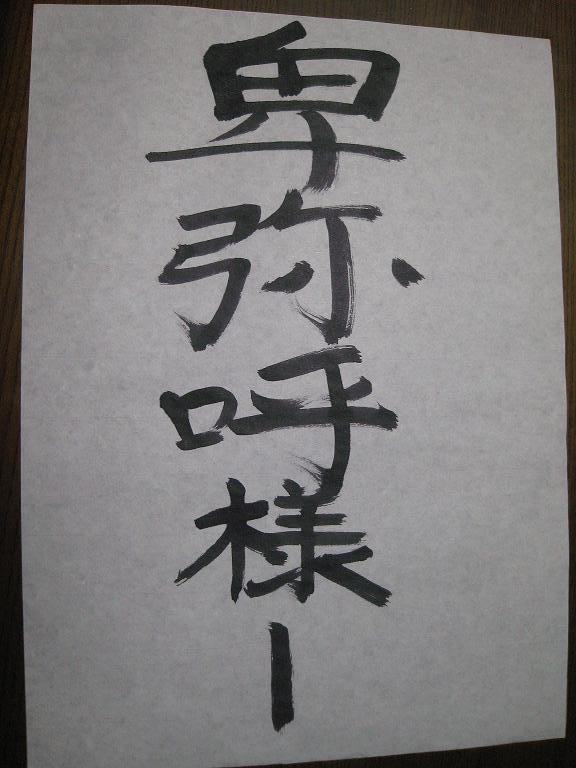 卑弥呼様ー